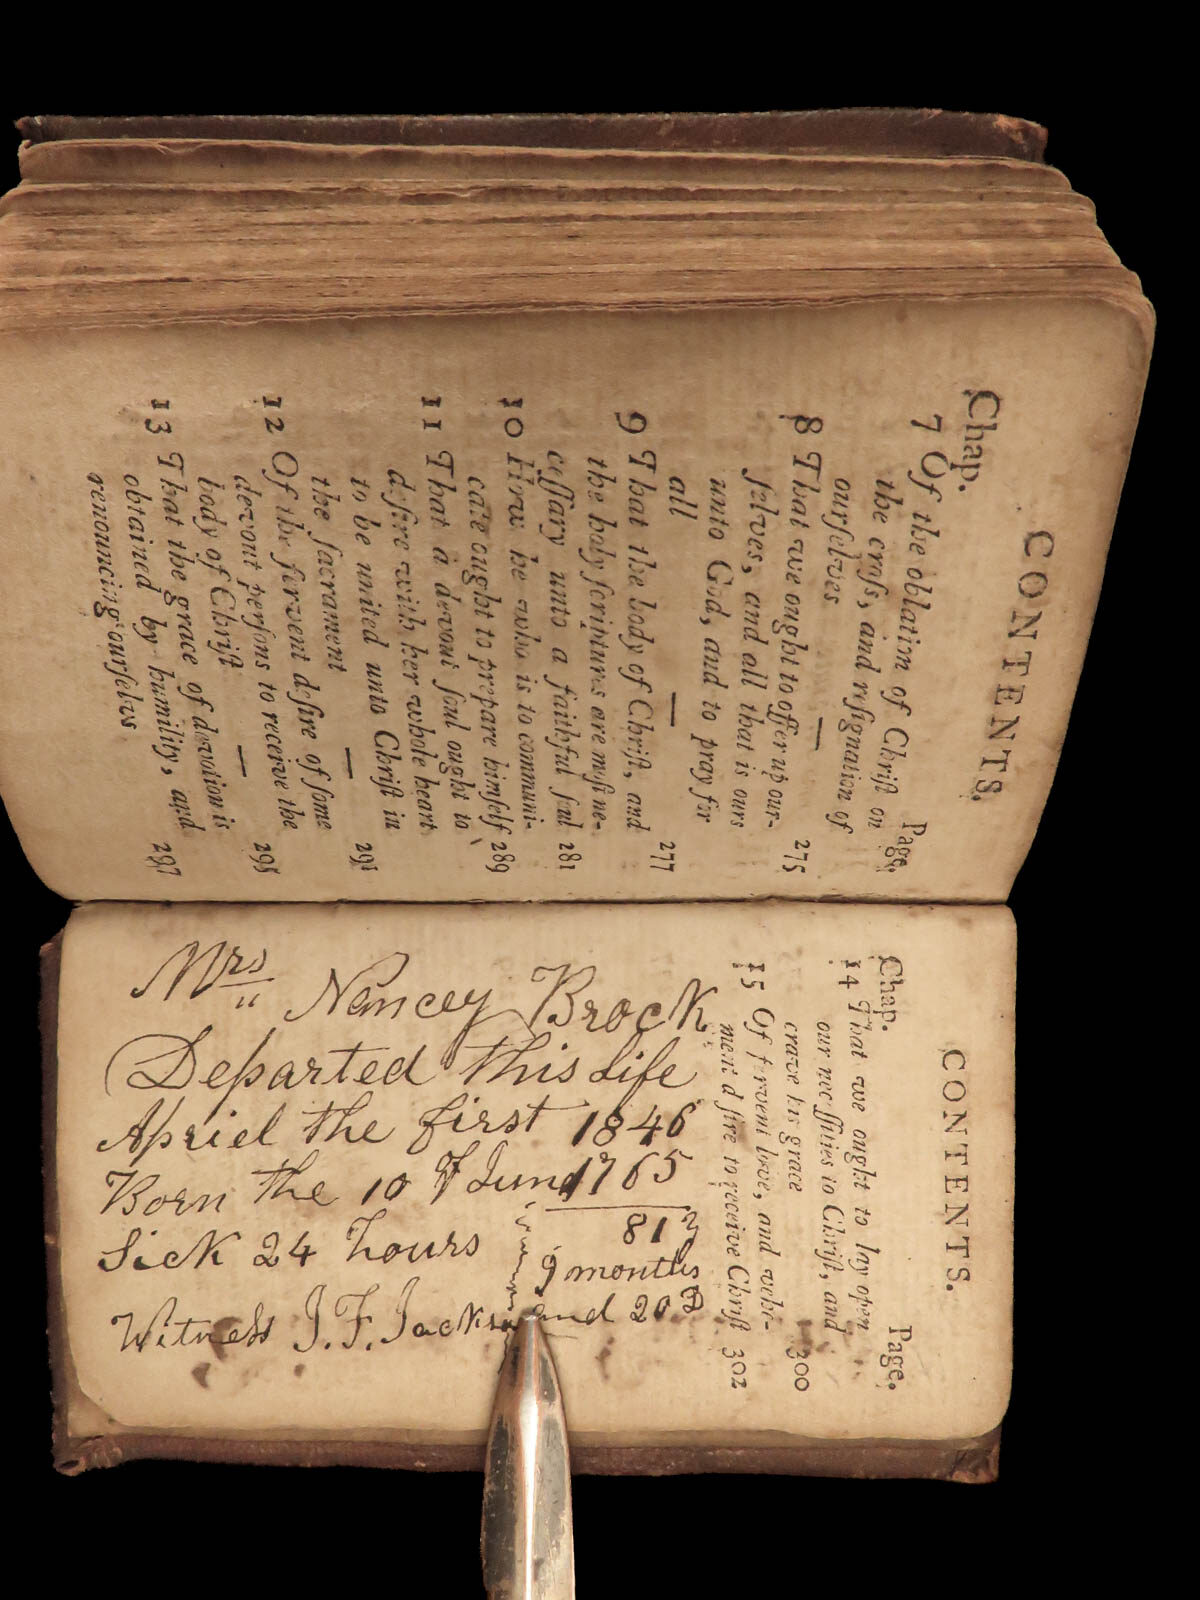 CONTENTS.
Chap. Page.
7 Of the oblation of Christ on
the cross, and resignation of
ourselves
8 That we ought to offer up our-
selves, and all that is ours
unto God, and to pray for
all 275
9 That the body of Christ, and
the holy scriptures are most ne-
cessary unto a faithful soul 281
10 How he who is to communi-
cate ought to prepare himself 289
11 That a devout soul ought to
desire with her whole heart
to be united unto Christ in
the sacrament
12 Of the fervent desire of some
devout persons to receive the
body of Christ 295
13 That the grace of devotion is
obtained by humility, and
renouncing ourselves 297
CONTENTS.
Chap. Page.
14 That we ought to lay open
our necessities to Christ, and
crave his grace 300
15 Of fervent love, and vehe-
ment desire to receive Christ 302
Mrs Nancey Brock
Departed this Life
Apriel the first 1846
Born the 10 of June 1765
81
Sick 24 hours
9 months
and 20 D
Witness J. F. Jackson